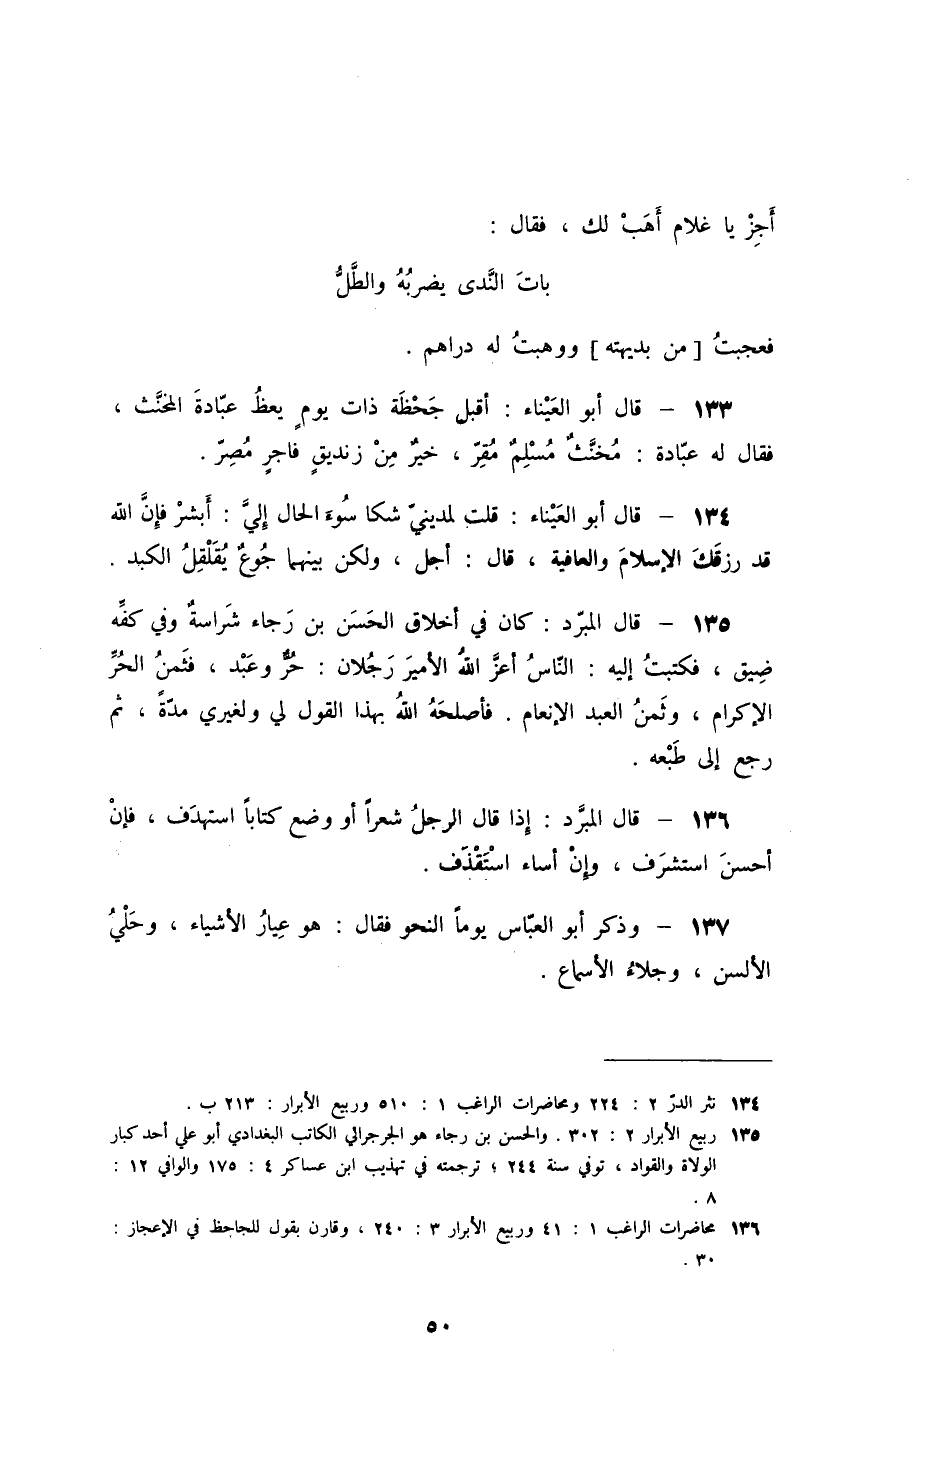 أَجِزْ يا غلام أَهَبْ لك ، فقال :
باتَ النَّدى يضربُهُ والطَّلُّ
فعجبتُ [ من بديهته ] ووهبتُ له دراهم .
١٣٣ – قال أبو العَيْناء : أقبل جَحْظَة ذات يومٍ يعظُ عبّادةَ المخنَّث ،
فقال له عبّادة : مُخنَّثٌ مُسْلِمٌ مُقِرّ ، خيرٌ مِنْ زنديقٍ فاجرٍ مُصِرّ .
١٣٤ – قال أبو العَيْناء : قلت لمدينيّ شكا سُوءَ الحال إليَّ : أَبشرْ فإِنَّ الله
قد رزقَكَ الإسلامَ والعافية ، قال : أجل ، ولكن بينهما جُوعٌ يُقَلْقِلُ الكبد .
١٣٥ – قال المبرّد : كان في أخلاق الحَسَن بن رَجاء شَراسةٌ وفي كفِّه
ضِيق ، فكتبتُ إليه : النّاسُ أعزَّ اللهُ الأميرَ رَجُلان : حُرٌّ وعَبْد ، فثَمنُ الحُرِّ
الإكرام ، وثَمنُ العبد الإنعام . فأصلحَهُ اللهُ بهذا القول لي ولغيري مدّةً ، ثم
رجع إلى طَبْعه .
١٣٦ – قال المبرَّد : إِذا قال الرجلُ شعراً أو وضع كتاباً استهدَف ، فإنْ
أحسنَ استشرَف ، وإِنْ أساء اسْتَقْذَف .
١٣٧ – وذكر أبو العبّاس يوماً النحو فقال : هو عِيارُ الأشياء ، وحَلْيُ
الألسن ، وجلاءُ الأسماع .
١٣٤ نثر الدرّ ٢ : ٢٢٤ ومحاضرات الراغب ١ : ٥١٠ وربيع الأبرار : ٢١٣ ب .
١٣٥ ربيع الأبرار ٢ : ٣٠٢ . والحسن بن رجاء هو الجرجرالي الكاتب البغدادي أبو علي أحد كبار
الولاة والقواد ، توفي سنة ٢٤٤ ؛ ترجمته في تهذيب ابن عساكر ٤ : ١٧٥ والوافي ١٢ :
٨ .
١٣٦ محاضرات الراغب ١ : ٤١ وربيع الأبرار ٣ : ٢٤٠ ، وقارن بقول للجاحظ في الإعجاز :
٣٠ .
٥٠